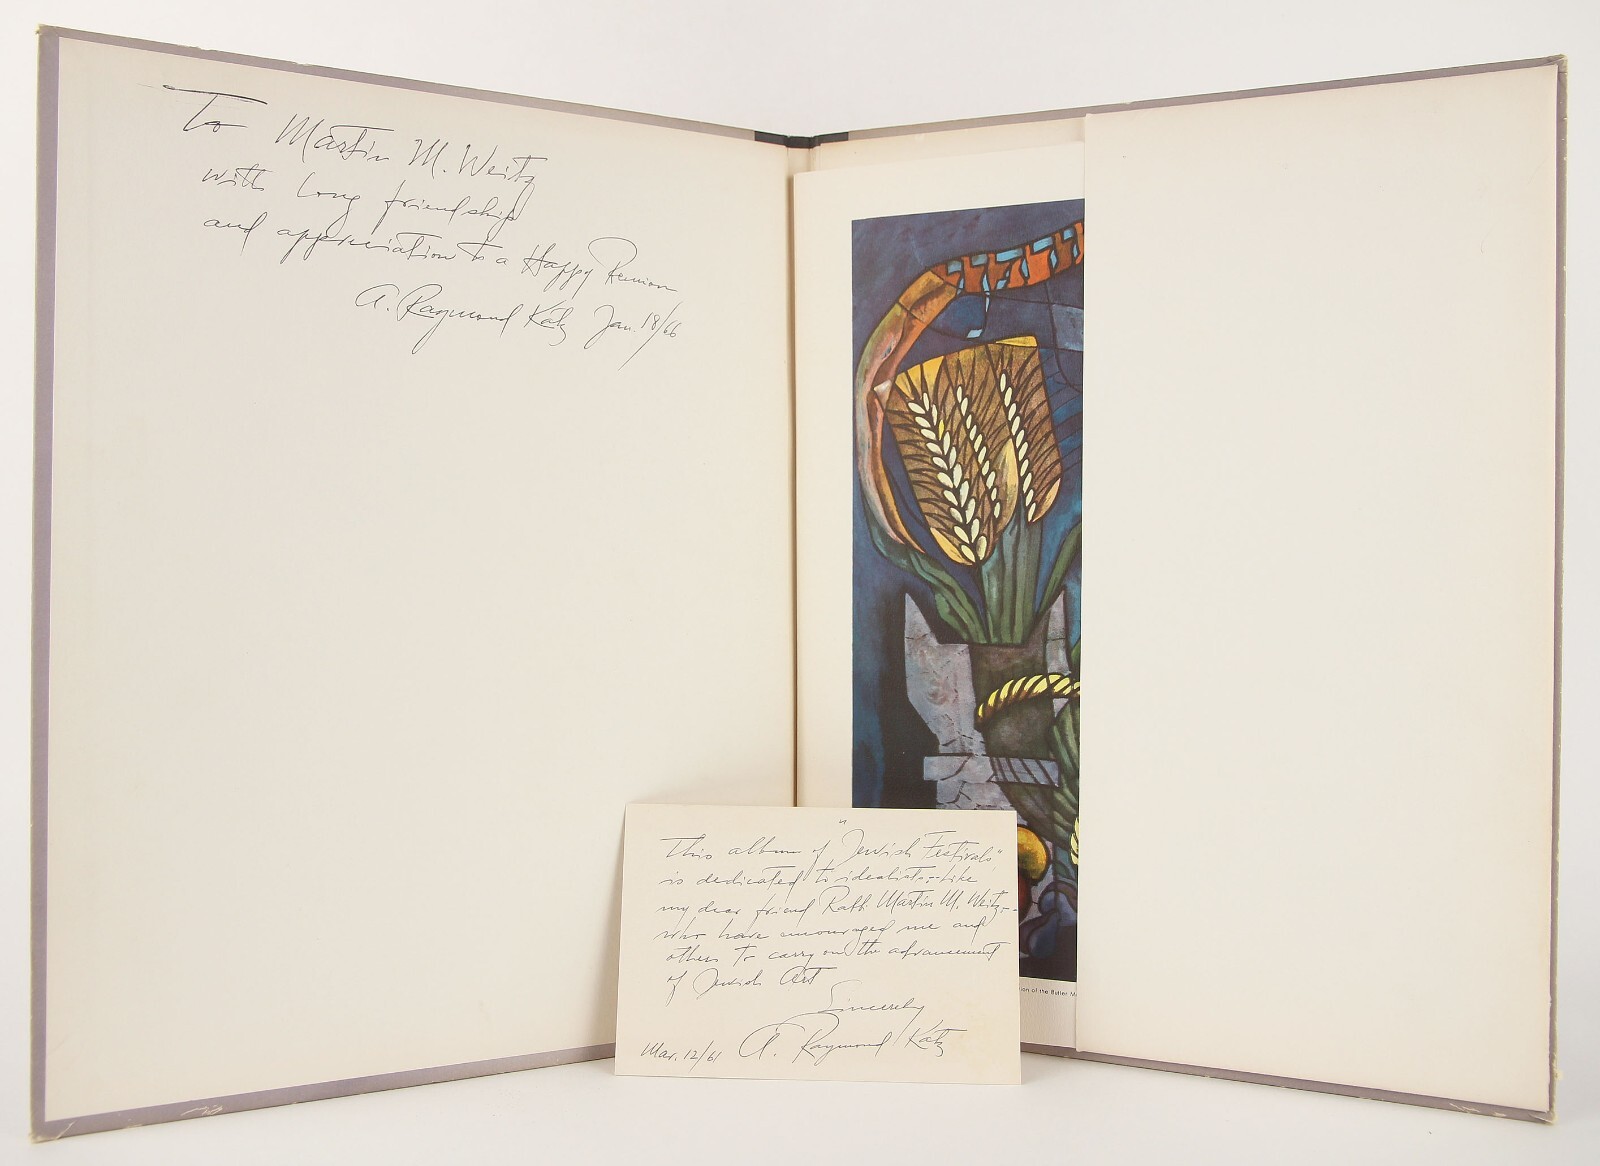 To Martin M. Weitz
with long friendship
and appreciation to a Happy Reunion
A. Raymond Katz Jan. 18/66
This album of "Jewish Festivals"
is dedicated to idealists-like
my dear friend Rabb. Martin M. Weitz--
who have encouraged me and
others to carry on the advancement
of Jewish Art
Sincerely
Mar. 12/61 A. Raymond Katz
ion of the Butler M